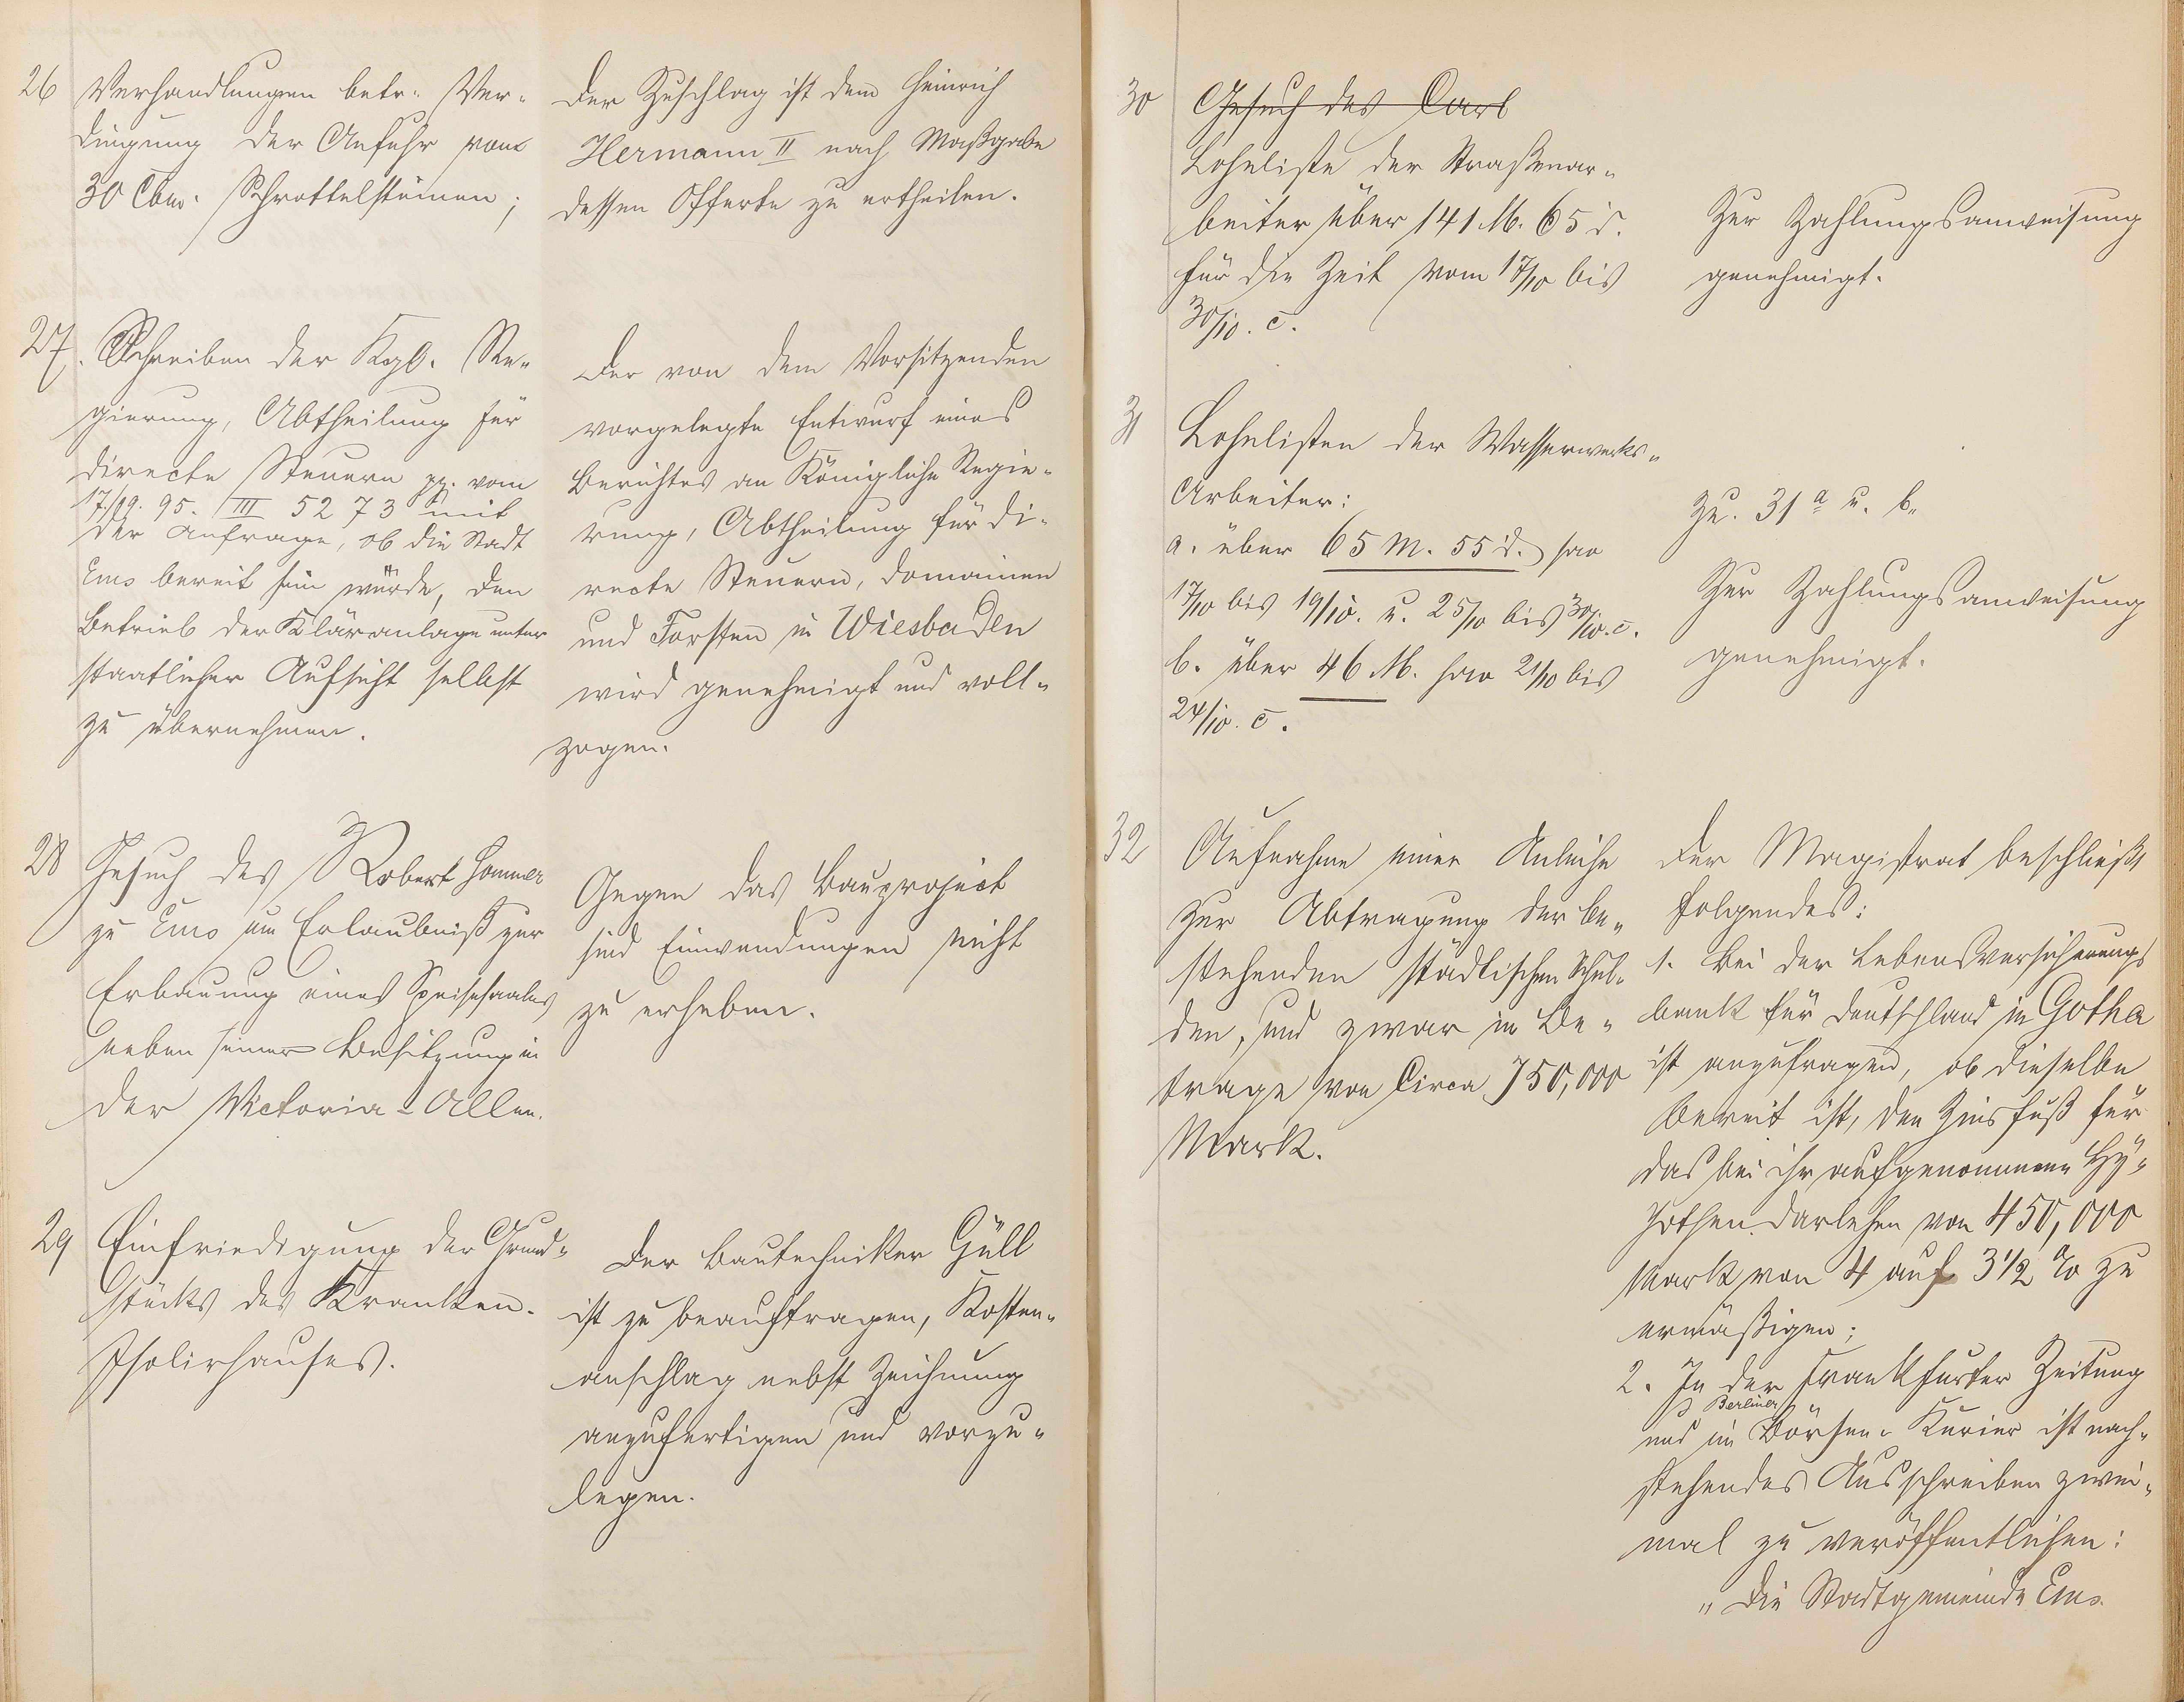 26 Verhandlungen betr. Ver-
dingung der Anfuhr von
30 Cbm. Schrottelsteinen;
Der Zuschlag ist dem Heinrich
Hermann II nach Maßgabe
dessen Offerte zu ertheilen.
27. Schreiben der Kgl. Re-
gierung, Abtheilung für
directe Steuern pp. vom
17./9. 95. III 5273 mit
der Anfrage, ob die Stadt
Ems bereit sein würde, den
Betrieb der Kläranlage unter
staatlicher Aufsicht selbst
zu übernehmen.
Der von dem Vorsitzenden
vorgelegte Entwurf eines
Berichtes an Königliche Regie-
rung, Abtheilung für di-
recte Steuern, Domainen
und Forsten in Wiesbaden
wird genehmigt und voll-
zogen.
28 Gesuch des Robert Hommer
zu Ems um Erlaubniß zur
Erbauung eines Speisesaales
neben seiner Besitzung in
der Victoria-Allee.
Gegen das Bauproject
sind Einwendungen nicht
zu erheben.
29 Einfriedigung des Grund-
stücks des Kranken-
Isolirhauses.
Der Bautechniker Güll
ist zu beauftragen, Kosten-
anschlag nebst Zeichnung
anzufertigen und vorzu-
legen.
30 Gesuch des Carl
Lohnliste der Straßenar-
beiter über 141 M. 65 d.
für die Zeit vom 17/10 bis
30/10. c.
Zur Zahlungsanweisung
genehmigt.
31 Lohnlisten der Wasserwerks-
Arbeiter:
a. über 65 M. 55 d. pro
17/10 bis 19/10. u. 25/10 bis 30/10. c.
b. über 46 M. pro 21/10 bis
24/10. c.
Zu. 31 a u. b.
Zur Zahlungsanweisung
genehmigt.
32 Aufnahme einer Anleihe
zur Abtragung der be-
stehenden städtischen Schul-
den, und zwar im Be-
trage von Circa 750,000
Mark.
Der Magistrat beschließt
folgendes:
1. Bei der Lebensversicherungs
bank für Deutschland in Gotha
ist anzufragen, ob dieselbe
bereit ist, den Zinsfuß für
das bei ihr aufgenommene Hy-
pothen Darlehen von 450,000
Mark von 4 auf 3 1/2 % zu
ermäßigen;
2. In der Frankfurter Zeitung
Berliner
und im Börsen-Kurier ist nach-
stehendes Ausschreiben zwei-
mal zu veröffentlichen:
„Die Stadtgemeinde Ems